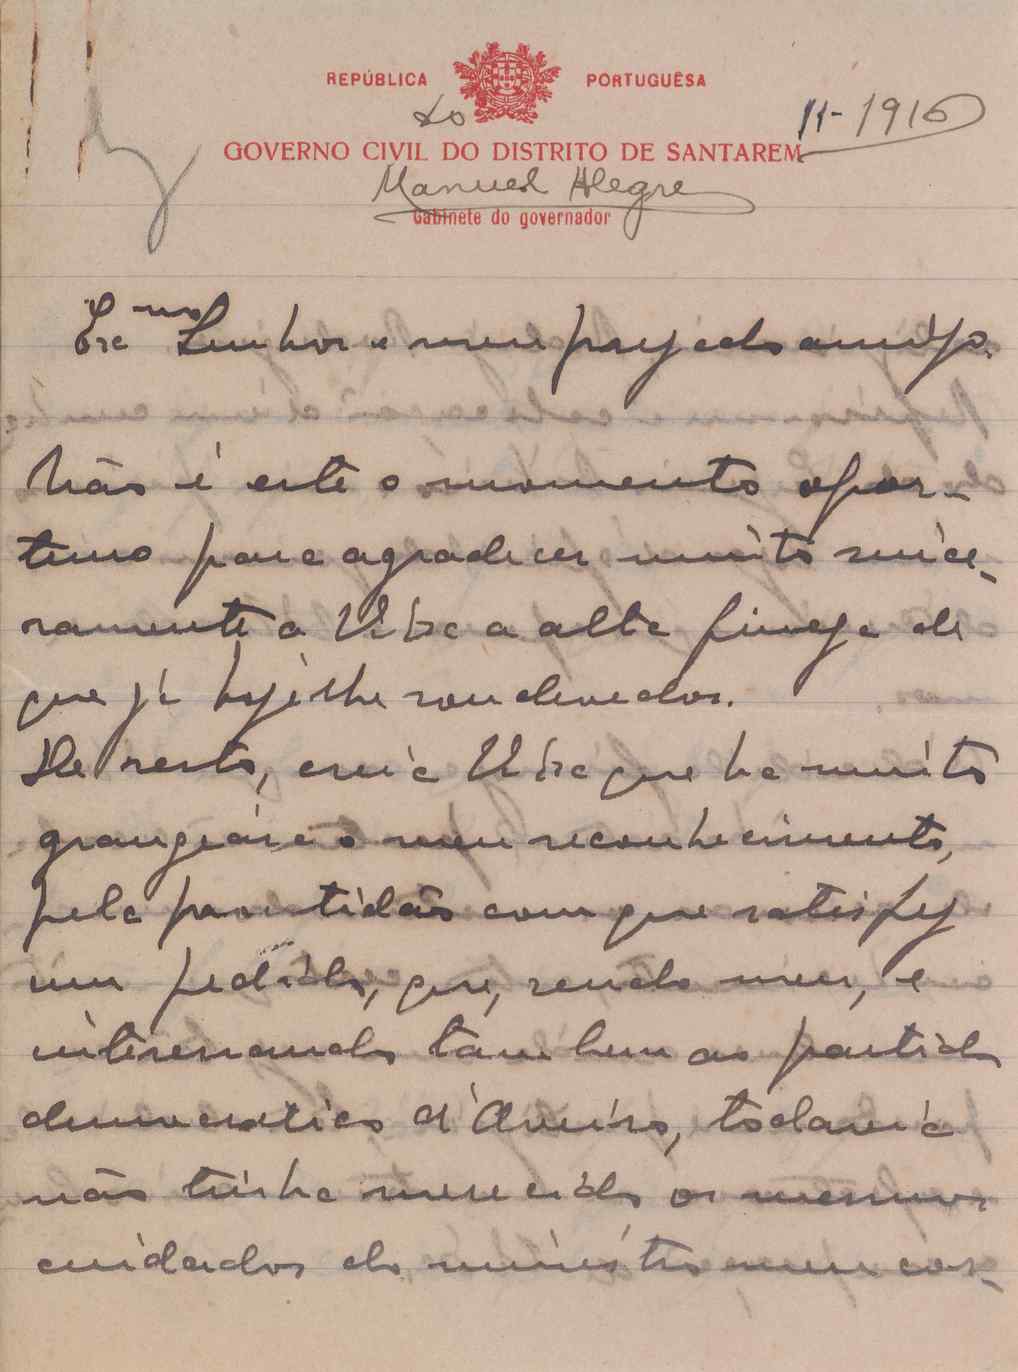 REPÚBLICA PORTUGUÊSA
11-1916
GOVERNO CIVIL DO DISTRITO DE SANTAREM
Manuel Alegre
Gabinete do governador
Exc.mo Senhor e meu prezado amigo.
Não é este o momento opor-
tuno para agradecer muito since-
ramente a V. Exc a alta fineza de
que já hoje lhe sou devedor.
De resto, creia V. Exc que ha muito
grangeára o meu reconhecimento,
pela prontidão com que satisfez
um pedido, que, sendo meu, e
interessando tambem ao partido
democratico d'Aveiro, todavia
não tinha merecido os mesmos
cuidados do ministro, meu cor-